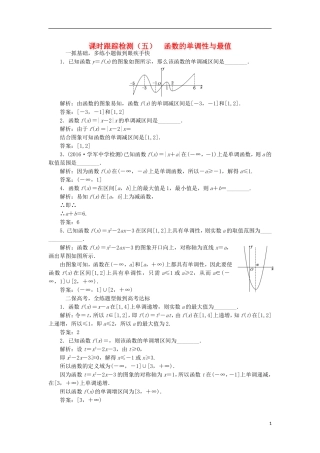 课时跟踪检测（五） 函数的单调性与最值
一抓基础，多练小题做到眼疾手快
1．已知函数y＝f(x)的图象如图所示，那么该函数的单调减区间是________．
解析：由函数的图象易知，函数f(x)的单调减区间是[－3，－1]和[1,2]．
答案：[－3，－1]和[1,2]
2．函数f(x)＝|x－2|x的单调减区间是________．
解析：由于f(x)＝|x－2|x＝
结合图象可知函数的单调减区间是[1,2]．
答案：[1,2]
3．(2016·学军中学检测)已知函数f(x)＝|x＋a|在(－∞，－1)上是单调函数，则a的
取值范围是________．
解析：因为函数f(x)在(－∞，－a)上是单调函数，所以－a≥－1，解得a≤1.
答案：(－∞，1]
4．函数f(x)＝在区间[a，b]上的最大值是1，最小值是，则a＋b＝________.
解析：易知f(x)在[a，b]上为减函数，
∴即∴
∴a＋b＝6.
答案：6
5．已知函数f(x)＝x²－2ax－3在区间[1,2]上具有单调性，则实数a的取值范围为____
____________．
解析：函数f(x)＝x²－2ax－3的图象开口向上，对称轴为直线x＝a，
画出草图如图所示．
由图象可知，函数在(－∞，a]和[a，＋∞)上都具有单调性，因此要
使函数f(x)在区间[1,2]上具有单调性，只需a≤1或a≥2，从而a∈(－
∞，1]∪[2，＋∞)．
答案：(－∞，1]∪[2，＋∞)
二保高考，全练题型做到高考达标
1．函数f(x)＝x－a在[1,4]上单调递增，则实数a的最大值为________．
解析：令＝t，所以t∈[1,2]，即f(t)＝t²－at，由f(x)在[1,4]上递增，知f(t)在[1,2]
上递增，所以≤1，即a≤2，所以a的最大值为2.
答案：2
2．已知函数f(x)＝，则该函数的单调增区间为________．
解析：设t＝x²－2x－3，由t≥0，
即x²－2x－3≥0，解得x≤－1或x≥3.
所以函数的定义域为(－∞，－1]∪[3，＋∞)．
因为函数t＝x²－2x－3的图象的对称轴为x＝1，所以函数t在(－∞，－1]上单调递减，
在[3，＋∞)上单调递增．
所以函数f(x)的单调增区间为[3，＋∞)．
答案：[3，＋∞)
1